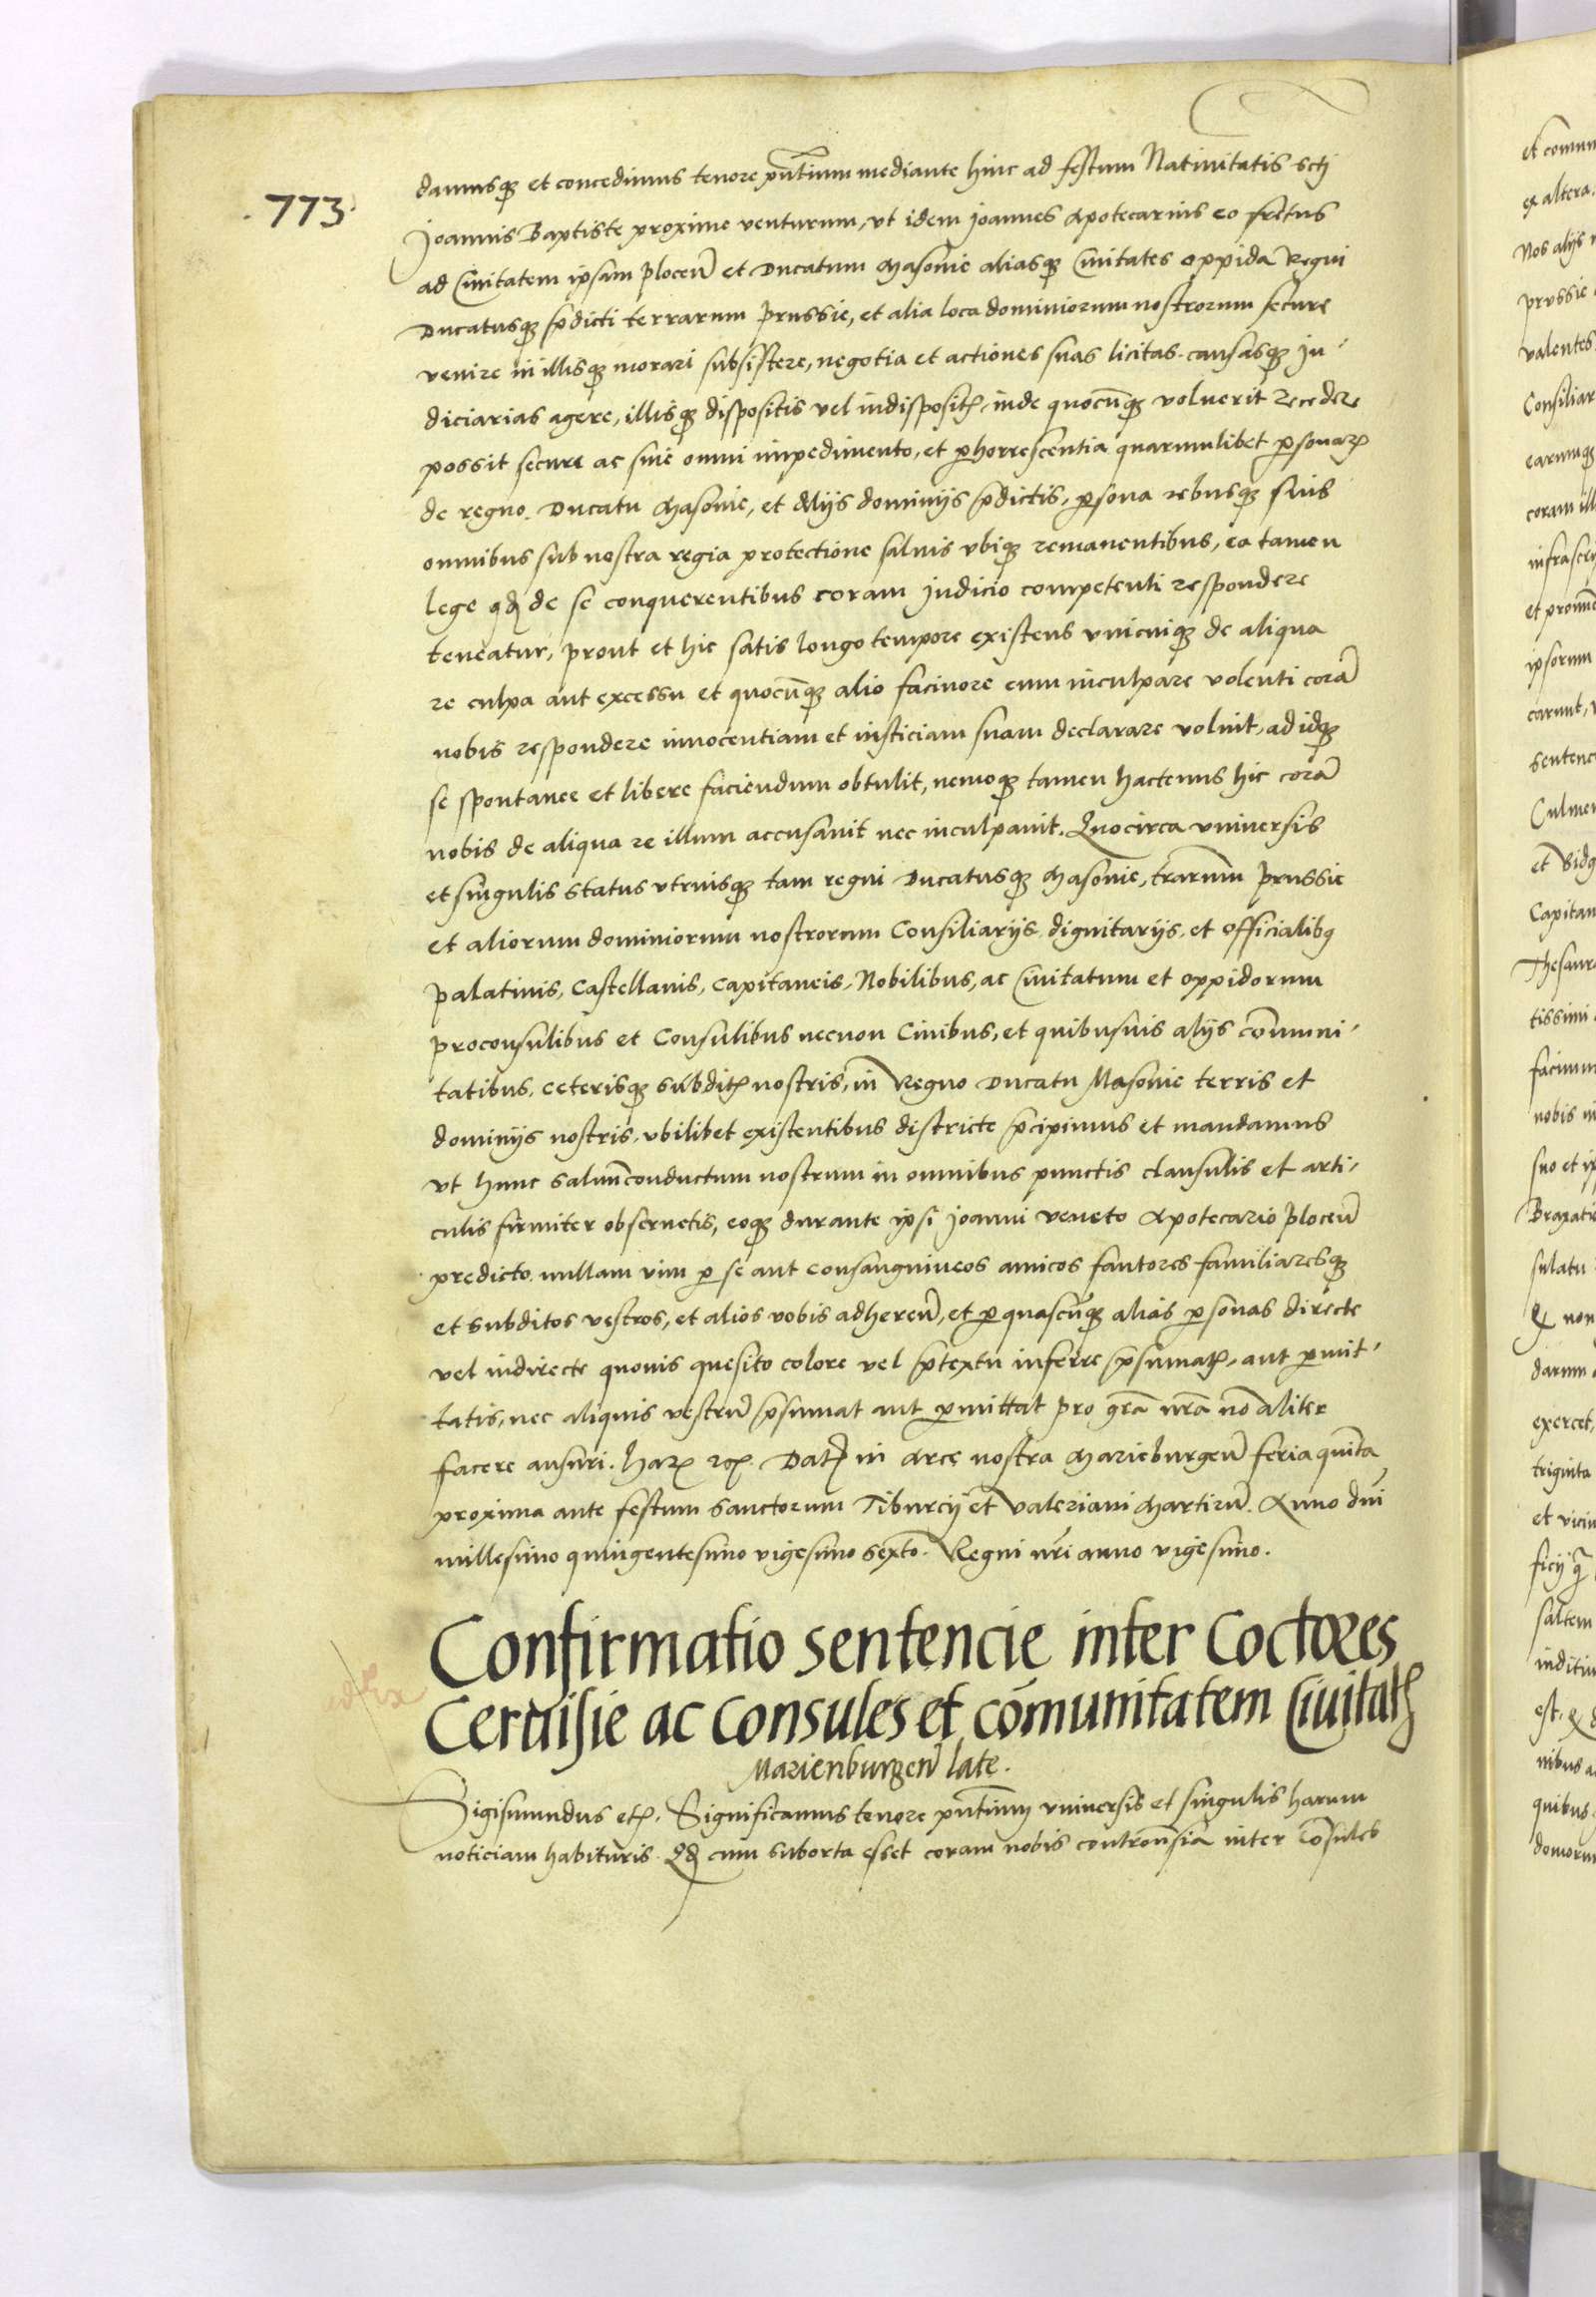 .773.
damusq3 et concedimus tenore pñtium mediante hinc ad festum Natiuitatis scti
Joannis Baptiste proxime venturum, vt idem Joannes Apotecarius eo fretus
ad Ciuitatem ipsam plocen̄ et Ducatum Masouie aliasq3 Ciuitates oppida Regni
Ducatusq3 p̄dicti terrarum prussie, et alia loca dominiorum nostrorum secure
venire in illisq3 morari subsistere, negotia et actiones suas licitas causasq3 Ju-
diciarias agere, illisq3 dispositis vel indisposit~ inde quocūq3 voluerit recedere
possit secure ac sine omni impedimento, et p̱horrescentia quarumlibet p̱sonar~
de regno Ducatu Masouie, et Alijs dominijs p̄dictis, p̱sona rebusq3 suis
omnibus sub nostra regia protectione saluis vbiq3 remanentibus, ea tamen
lege qđ de se conquerentibus coram Judicio competenti respondere
teneatur, prout et hic satis longo tempore existens vnicuiq3 de aliqua
re culpa aut excessu et quocūq3 alio facinore eum inculpare volenti corā
nobis respondere innocentiam et insticiam suam declarare voluit, ad idq3
se spontanee et libere faciendum obtulit, nemoq3 tamen hactenus hic corā
nobis de aliqua re illum accusauit nec inculpauit. Quocirca vniuersis
et singulis status vtriusq3 tam regni Ducatusq3 Masouie, trarum prussie
et aliorum dominiorum nostrorum Consiliarijs dignitarijs, et officialibq
palatinis, Castellanis, Capitaneis, Nobilibus, ac Ciuitatum et oppidorum
proconsulibus et Consulibus necnon Ciuibus, et quibusuis alijs cōmuni-
tatibus, ceterisq3 subdit~ nostris, in Regno Ducatu Masouie terris et
dominijs nostris, vbilibet existentibus districte p̄cipimus et mandamus
vt hunc saluūconductum nostrum in omnibus punctis clausulis et arti-
culis firmiter obseruetis, eoq3 durante ipsi Joanni veneto Apotecario plocen̄
predicto nullam vim p̱ se aut consanguineos amicos fautores familiaresq3
et subditos vestros, et alios vobis adheren̄, et p̱ quascūq3 alias p̱sonas directe
vel indirecte quouis quesito colore vel p̄textu inferre p̄sumat~, aut p̱mit-
tatis, nec aliquis vestrū p̄sumat aut p̱mittat pro grā nrā nō aliter
facere ansuri. Har~ re~. Dat~ in Arce nostra Marieburgen̄ feria quinta
proxima ante festum sanctorum Tiburcij et Valeriani Martirū. Anno dnī
millesimo quingentesimo vigesimo sexto. Regni nrī anno vigesimo.
Confirmatio sentencie inter Coctores
Ceruisie ac Consules et cōmunitatem Ciuitat~
Marienburgen̄ late.
Sigismundus et~. Significamus tenore pñtium vniuersis et singulis harum
noticiam habituris. Qđ cum suborta esset coram nobis controūsia inter Cōsules